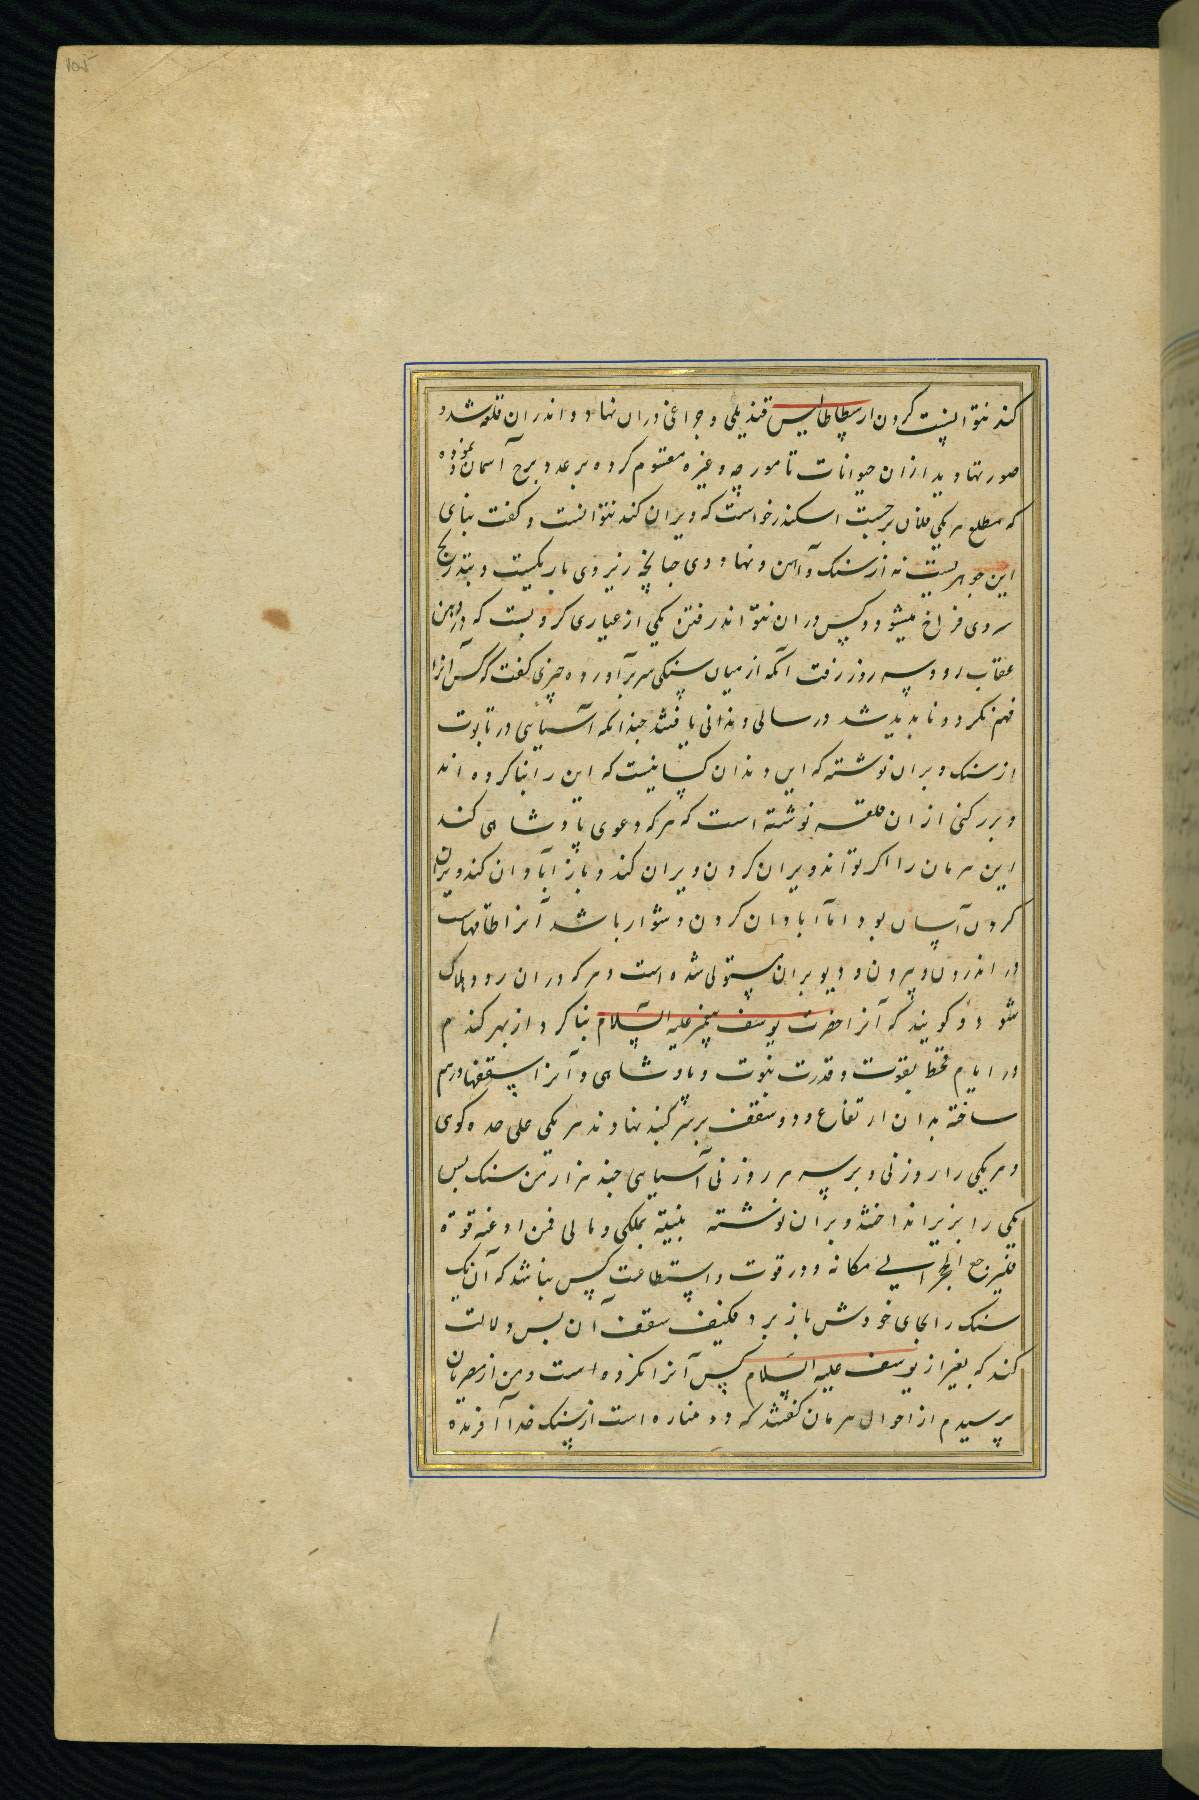 ۱۵۵
کند نتوانست کردن ارسطاطالیس قندیلی و چراغی دران نهاد و اندران قلعه شد و
صورتها دید ازان حیوانات تا مورچه و غیره مقسوم کرده بر عدد برج آسمان نموده
که مطلع هر یکی فلان برجست اسکندر خواست که ویران کند نتوانست و کفت بنای
این جوهریست نه از سنک و آهن و نهاد وی جنانجه زیر وی باریکست و بتدریج
سروی فراخ میشود و کس دران نتواند رفتن یکی از عیاری کرد بست که در دهن
عقاب رود و سه روز رفت آنکه از میان سنکی سر برآورد و چیزی کفت که کس آنرا
فهم نکرد و نابدید شد در سالی دندانی یافتند جندانکه آسیایی در تابوت
از سنک و بران نوشته که این دندان کسانیست که این را بنا کرده اند
و بر رکنی ازان قلعه نوشته است که هر که دعوی پادشاهی کند
این هرمان را اکر تواند ویران کردن ویران کند و باز آبادان کند ویران
کردن آسان بود اما آبادان کردن دشوار باشد آنرا طاقهاست
در اندرون و بیرون و دیو بران مستولی شده است و هر که دران رود هلاک
شود و کویند که آنرا حضرت یوسف پیغمبر علیه السلام بنا کرد از بهر کندم
در ایام قحط بقوت و قدرت نبوت و بادشاهی و آنرا سقفها درهم
ساخته بدان ارتفاع و دو سقف بر سر کنبد نهادند هر یکی علی حده کوی
و هر یکی را روزنی و بر سه هر روزنی آسیایی جند هزار من سنک بس
یکی را بزیر انداختند و بران نوشته بنیته بملکی و مالی فمن ادعی قوة
فلیرجع الحجر الی مکانه و در قوت و استطاعت کس نباشد که آن یک
سنک را بجای خودش باز برد فکیف سقف آن بس دلالت
کند که بغیر از یوسف علیه السلام کس آنرا نکرده است و من از مصریان
پرسیدم از احوال هرمان کفتند که دو مناره است از سنک خدا آفریده